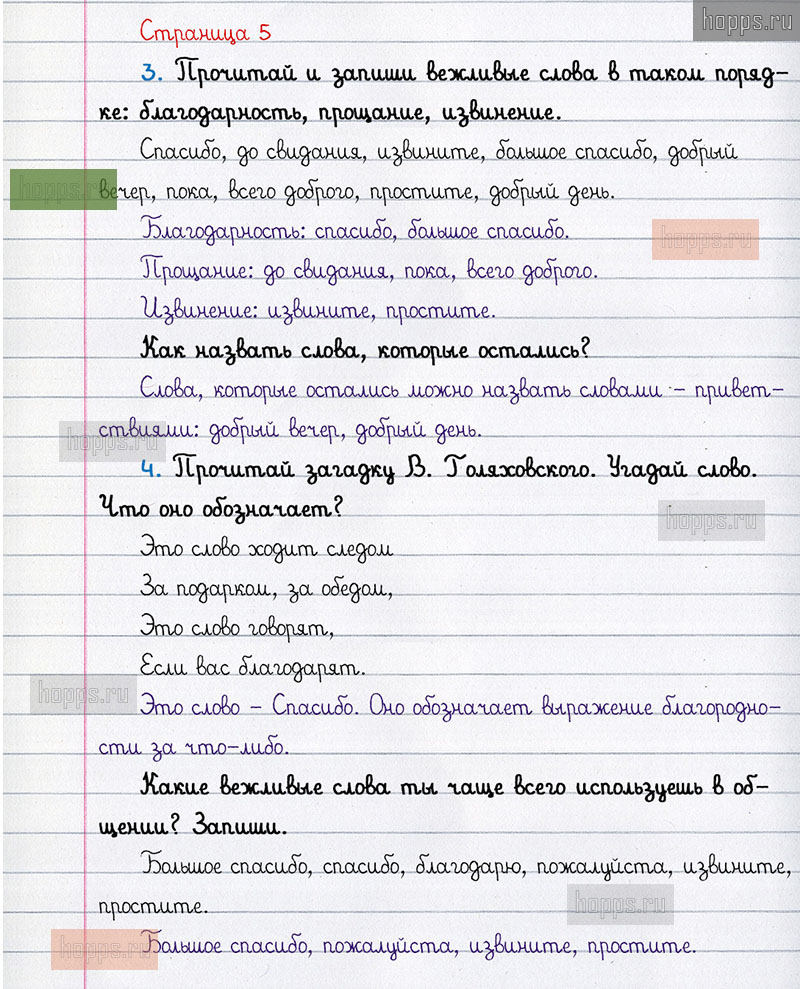 hopps.ru
Страница 5
3. Прочитай и запиши вежливые слова в таком поряд-
ке: благодарность, прощание, извинение.
Спасибо, до свидания, извините, большое спасибо, добрый
hopps.ru
вечер, пока, всего доброго, простите, добрый день.
Благодарность: спасибо, большое спасибо.
hopps.ru
Прощание: до свидания, пока, всего доброго.
Извинение: извините, простите.
Как назвать слова, которые остались?
Слова, которые остались можно назвать словами - привет-
ствиями: добрый вечер, добрый день.
hopps.ru
4. Прочитай загадку В. Голяховского. Угадай слово.
Что оно обозначает?
hopps.ru
Это слово ходит следом
За подарком, за обедом,
Это слово говорят,
Если вас благодарят.
hopps.ru
Это слово - Спасибо. Оно обозначает выражение благородно-
сти за что-либо.
Какие вежливые слова ты чаще всего используешь в об-
щении? Запиши.
Большое спасибо, спасибо, благодарю, пожалуйста, извините,
простите.
hopps.ru
hopps.ru
Большое спасибо, пожалуйста, извините, простите.